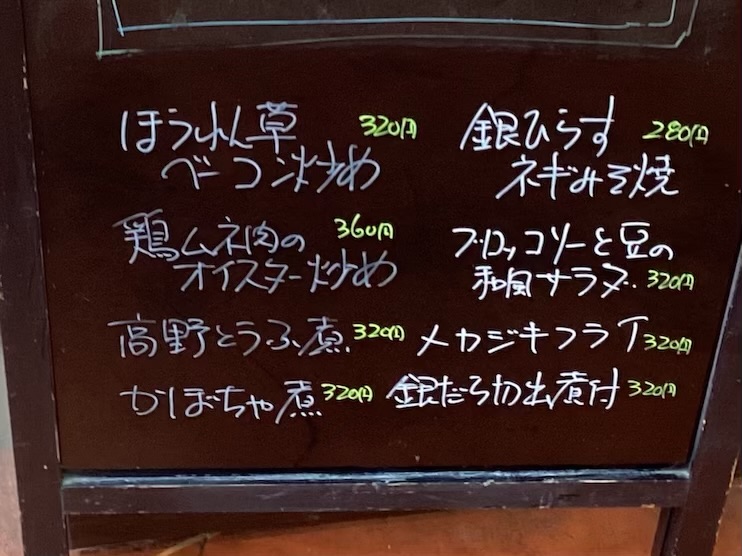 ほうれん草 320円
ベーコン炒め
鶏ムネ肉の 360円
オイスター炒め
高野とうふ煮 320円
かぼちゃ煮 320円
銀ひらす 280円
ネギみそ焼
ブロッコリーと豆の
和風サラダ 320円
メカジキフライ 320円
銀だら切出煮付 320円